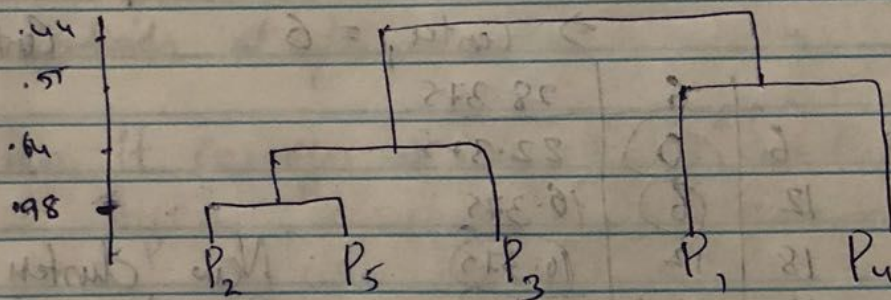 .44
.55
.64
.98
P2 P5 P3 P1 P4